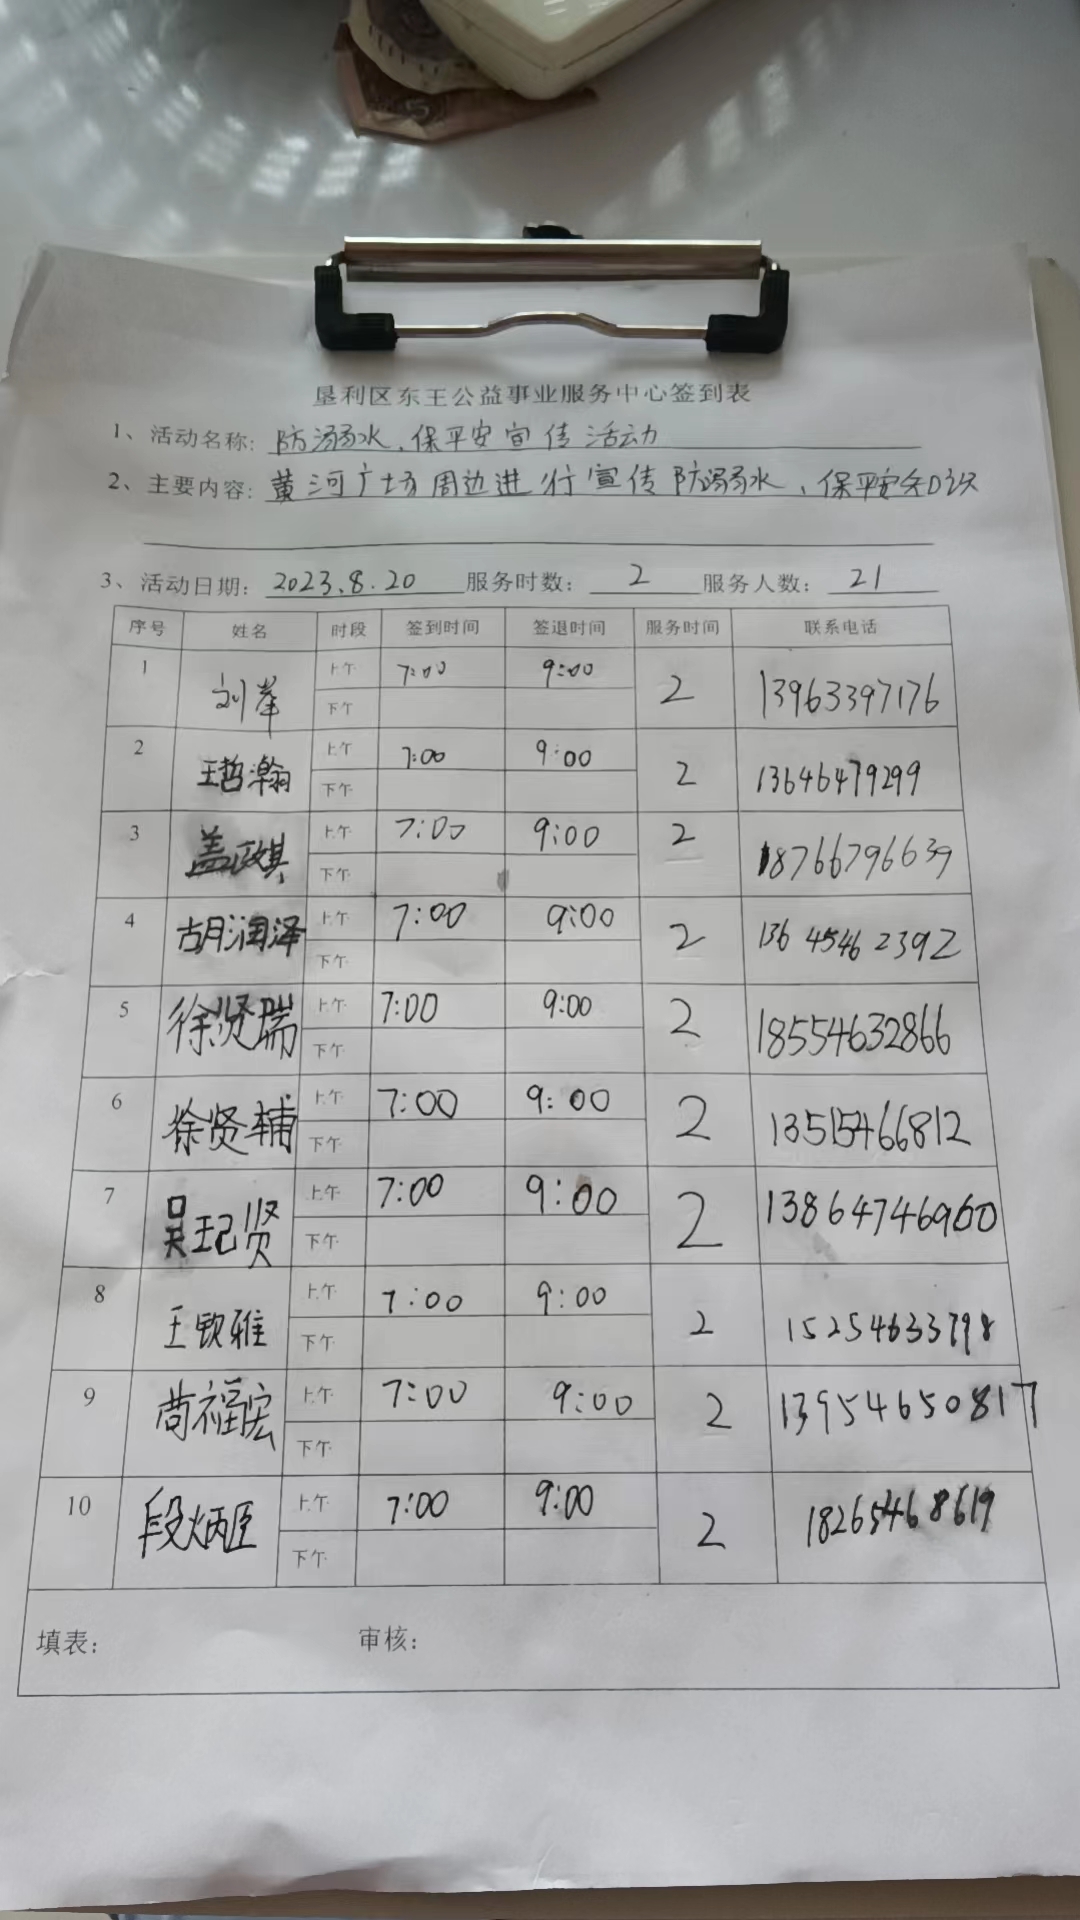 垦利区东王公益事业服务中心签到表
1、活动名称: 防溺水、保平安宣传活动
2、主要内容: 黄河广场周边进行宣传防溺水、保平安知识
3、活动日期: 2023.8.20 服务时数: 2 服务人数: 21
序号 姓名 时段 签到时间 签退时间 服务时间 联系电话
1 刘峰 上午 7:00 9:00 2 13963397176
下午
2 王哲瀚 上午 7:00 9:00 2 13646479299
下午
3 盖政其 上午 7:00 9:00 2 18766796639
下午
4 胡润泽 上午 7:00 9:00 2 136 4546 2392
下午
5 徐贤瑞 上午 7:00 9:00 2 18554632866
下午
6 徐贤辅 上午 7:00 9:00 2 13515466812
下午
7 吴玘贤 上午 7:00 9:00 2 13864746960
下午
8 王歆雅 上午 7:00 9:00 2 15254633798
下午
9 尚福宏 上午 7:00 9:00 2 13954650817
下午
10 段炳臣 上午 7:00 9:00 2 18265468619
下午
填表: 审核: